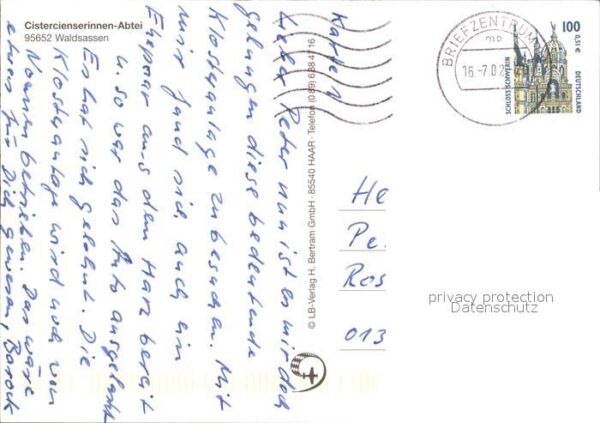 Cistercienserinnen-Abtei
95652 Waldsassen
Karte 1
Lieber Peter nun ist es mir doch
gelungen diese bedeutende
Klosteranlage zu besuchen. Mit
mir fand sich auch ein
Ehepaar aus dem Harz bereit
u. so war das Auto ausgelastet
Es hat sich gelohnt. Die
Klosteranlage wird noch von
Nonnen betrieben. Das wäre
etwas für Dich gewesen, Barock
© LB-Verlag H. Bertram GmbH · 85540 HAAR · Telefon (089) 6884716
BRIEFZENTRUM
mb
16.-7.02
SCHLOSS SCHWERIN
100
0,51€
DEUTSCHLAND
He
Pe.
Ros
013
privacy protection
Datenschutz